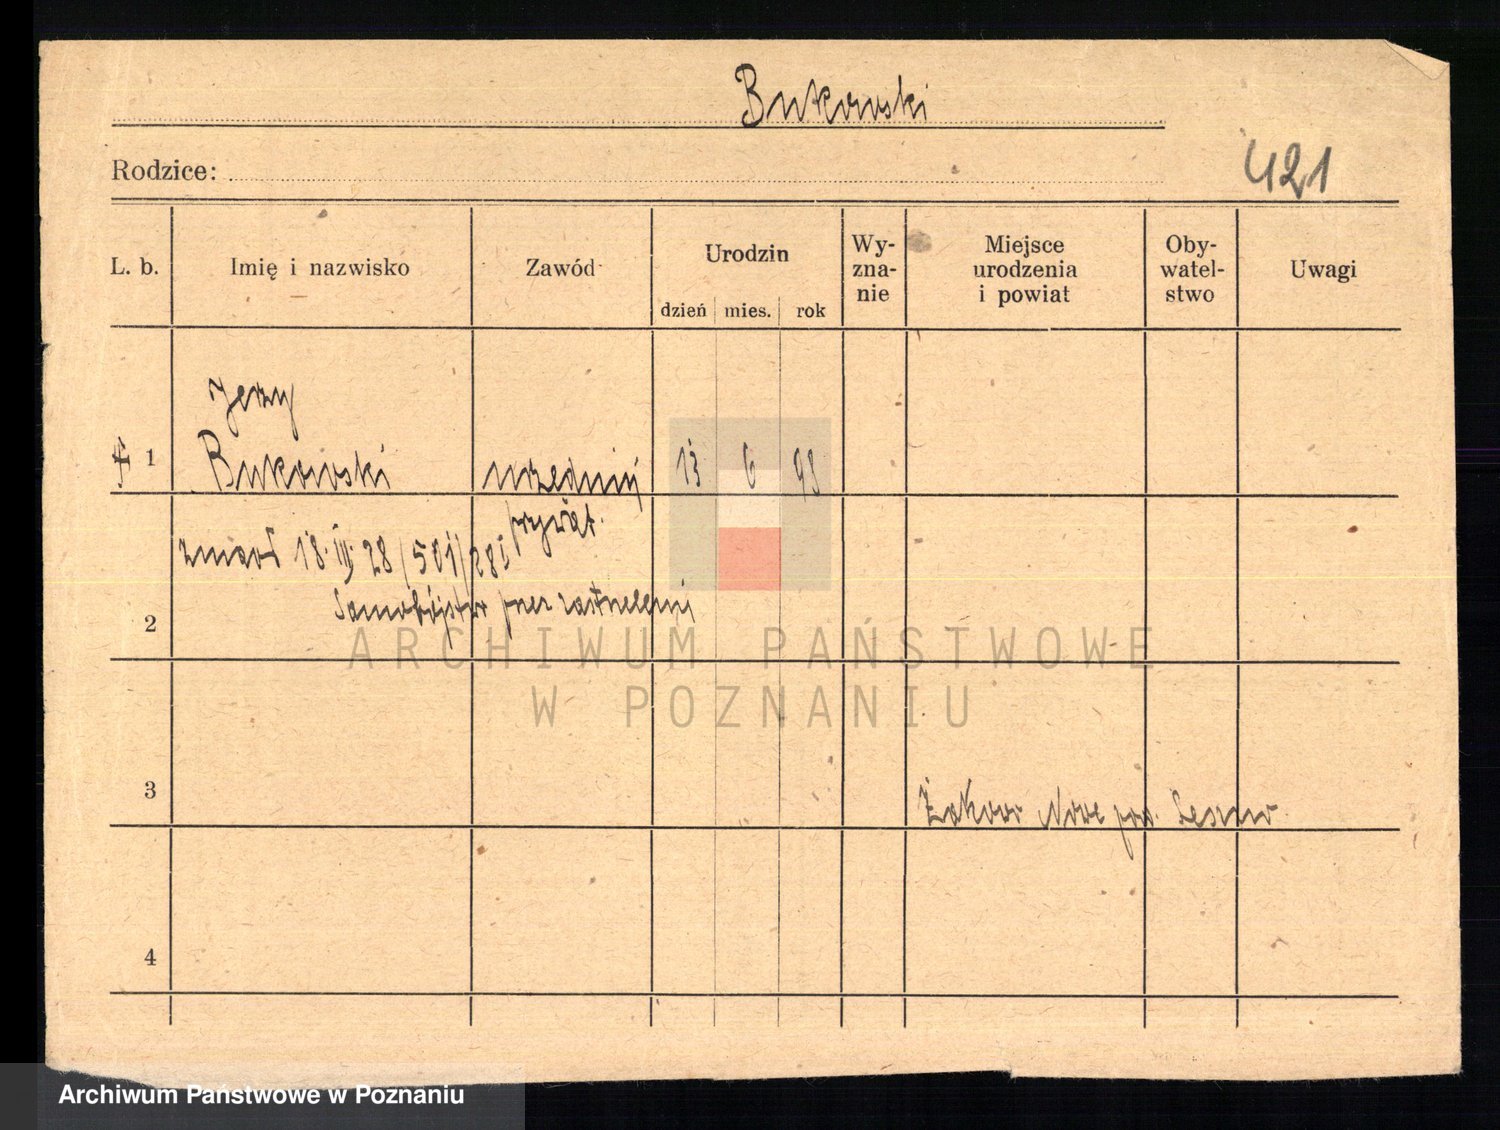 Bukowski
Rodzice:
421
L. b. Imię i nazwisko Zawód Urodzin Wy- zna- nie Miejsce urodzenia i powiat Oby- watel- stwo Uwagi
dzień mies. rok
Jerzy
1 Bukowski urzędnik 13 6 98
prywat.
zmarł 18. III. 28 /501/28
Samobójstwo przez zastrzelenie
2
ARCHIWUM PAŃSTWOWE
W POZNANIU
3 Nowe pow.
4
Archiwum Państwowe w Poznaniu